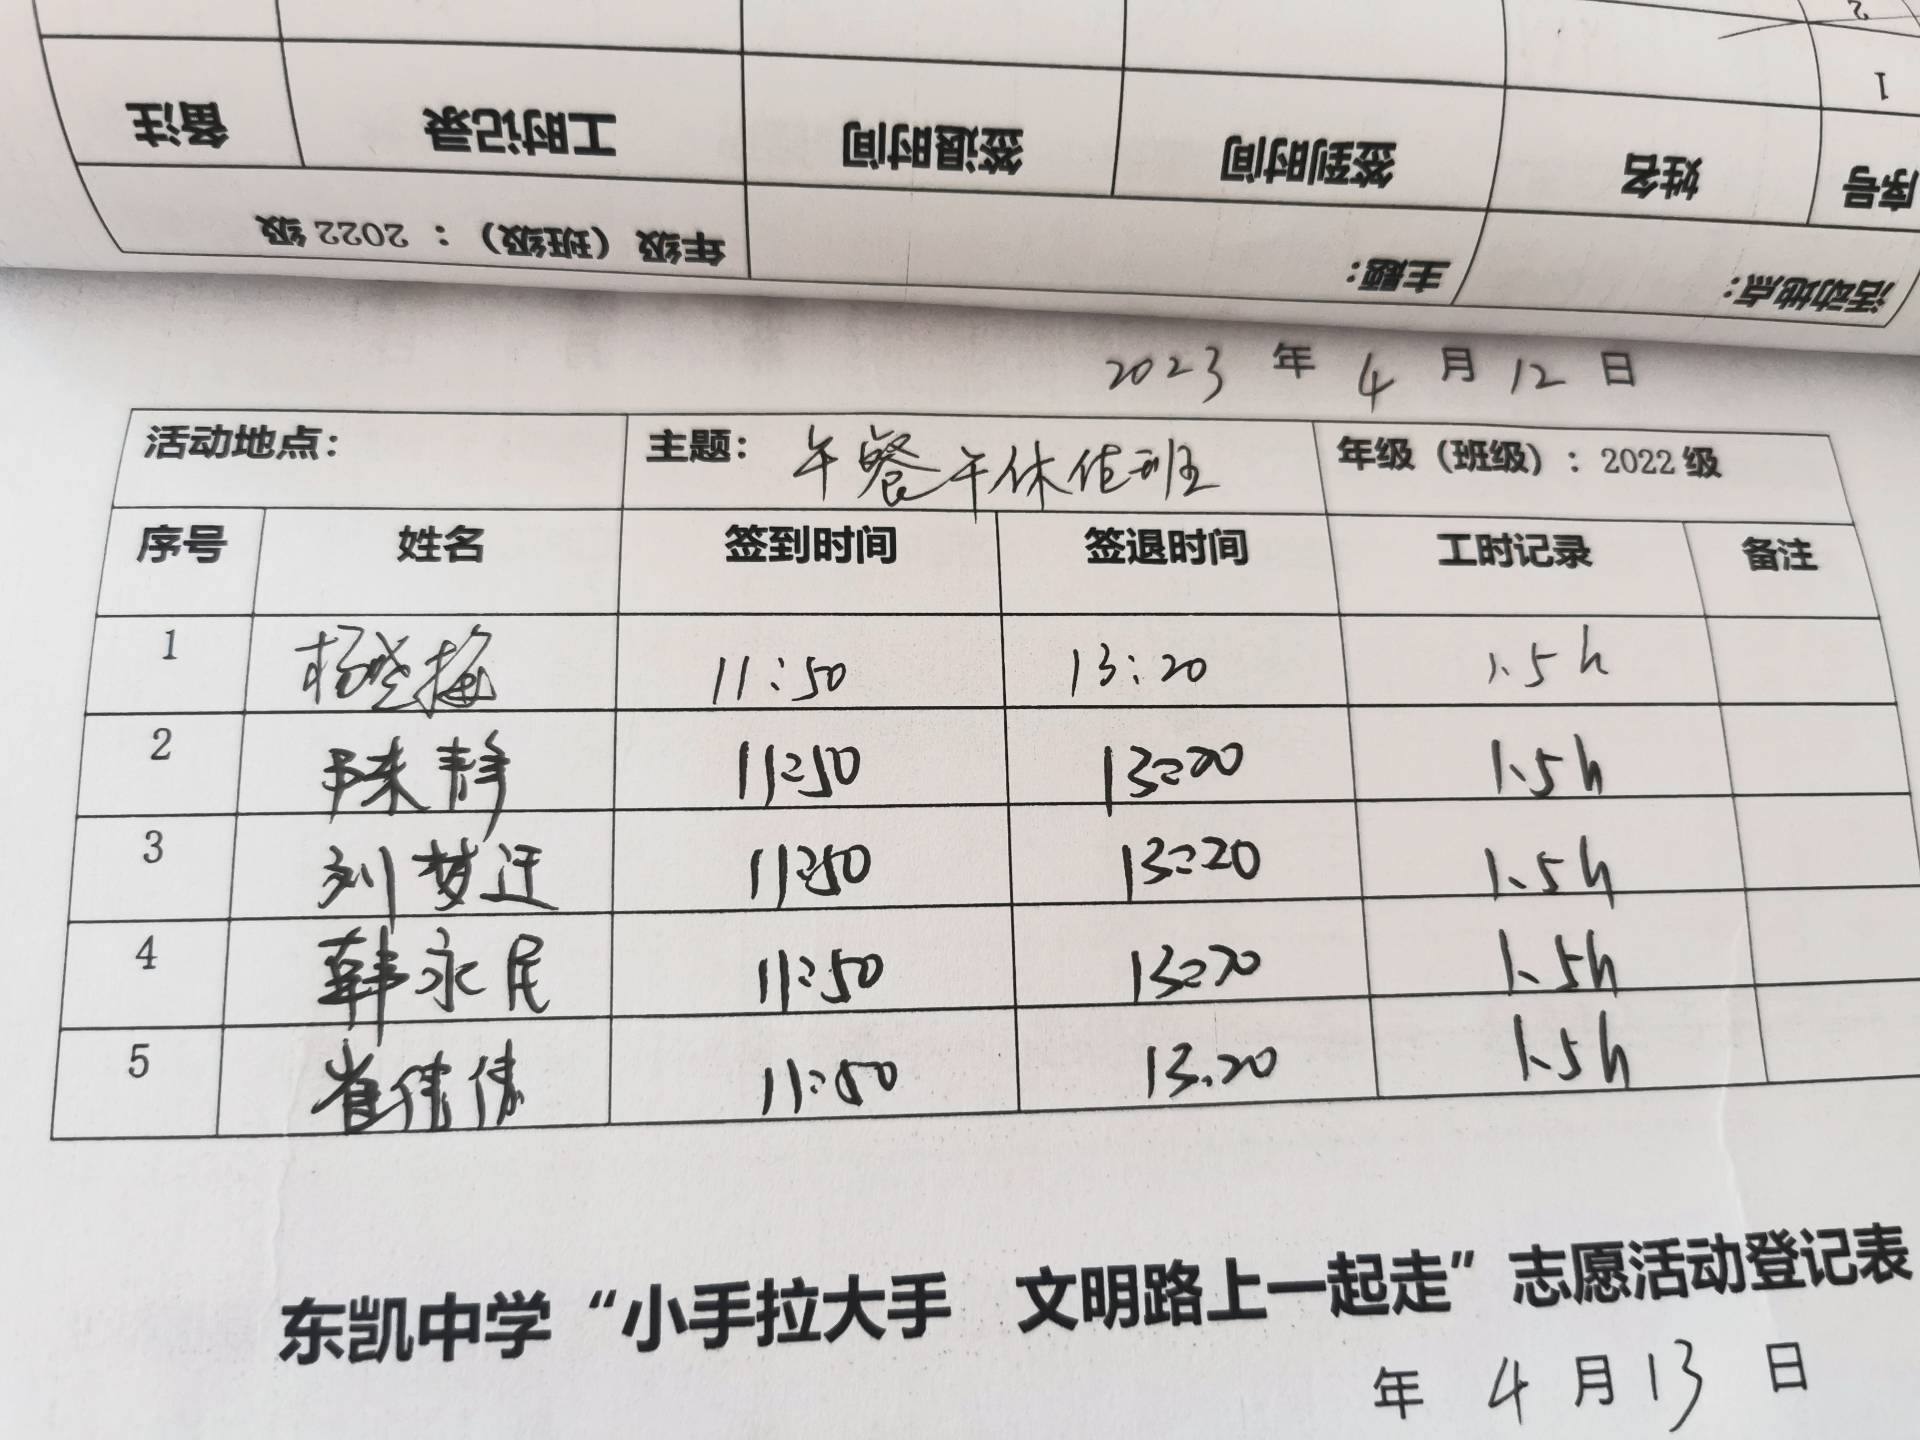 2
1
备注 工时记录 签退时间 签到时间 姓名 序号
年级（班级）：2022级 主题： 活动地点：
2023 年 4 月 12 日
活动地点： 主题： 午餐午休值班 年级（班级）：2022级
序号 姓名 签到时间 签退时间 工时记录 备注
1 11:50 13:20 1.5h
2 陈静 11:50 13:20 1.5h
3 刘梦迁 11:50 13:20 1.5h
4 韩永民 11:50 13:20 1.5h
5 崔伟伟 11:50 13.20 1.5h
东凯中学“小手拉大手 文明路上一起走”志愿活动登记表
年 4 月 13 日